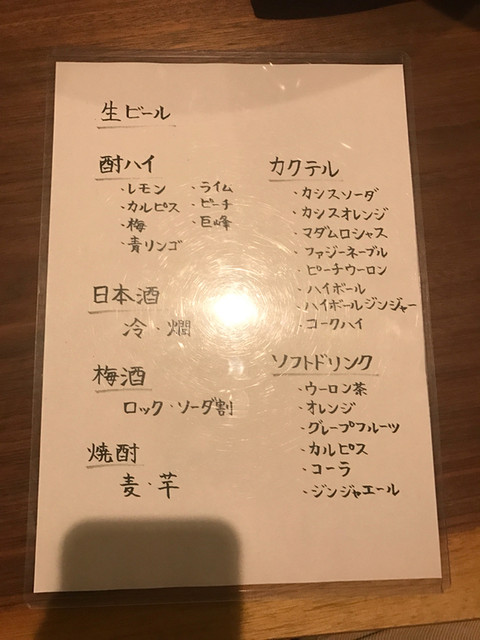 生ビール
酎ハイ
・レモン ・ライム
・カルピス ・ピーチ
・梅 ・巨峰
・青リンゴ
日本酒
冷・燗
梅酒
ロック・ソーダ割
焼酎
麦・芋
カクテル
・カシスソーダ
・カシスオレンジ
・マダムロシャス
・ファジーネーブル
・ピーチウーロン
・ハイボール
・ハイボールジンジャー
・コークハイ
ソフトドリンク
・ウーロン茶
・オレンジ
・グレープフルーツ
・カルピス
・コーラ
・ジンジャエール